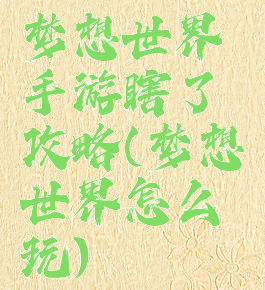 梦想世界
手游瞎了
攻略(梦想
世界怎么
玩)